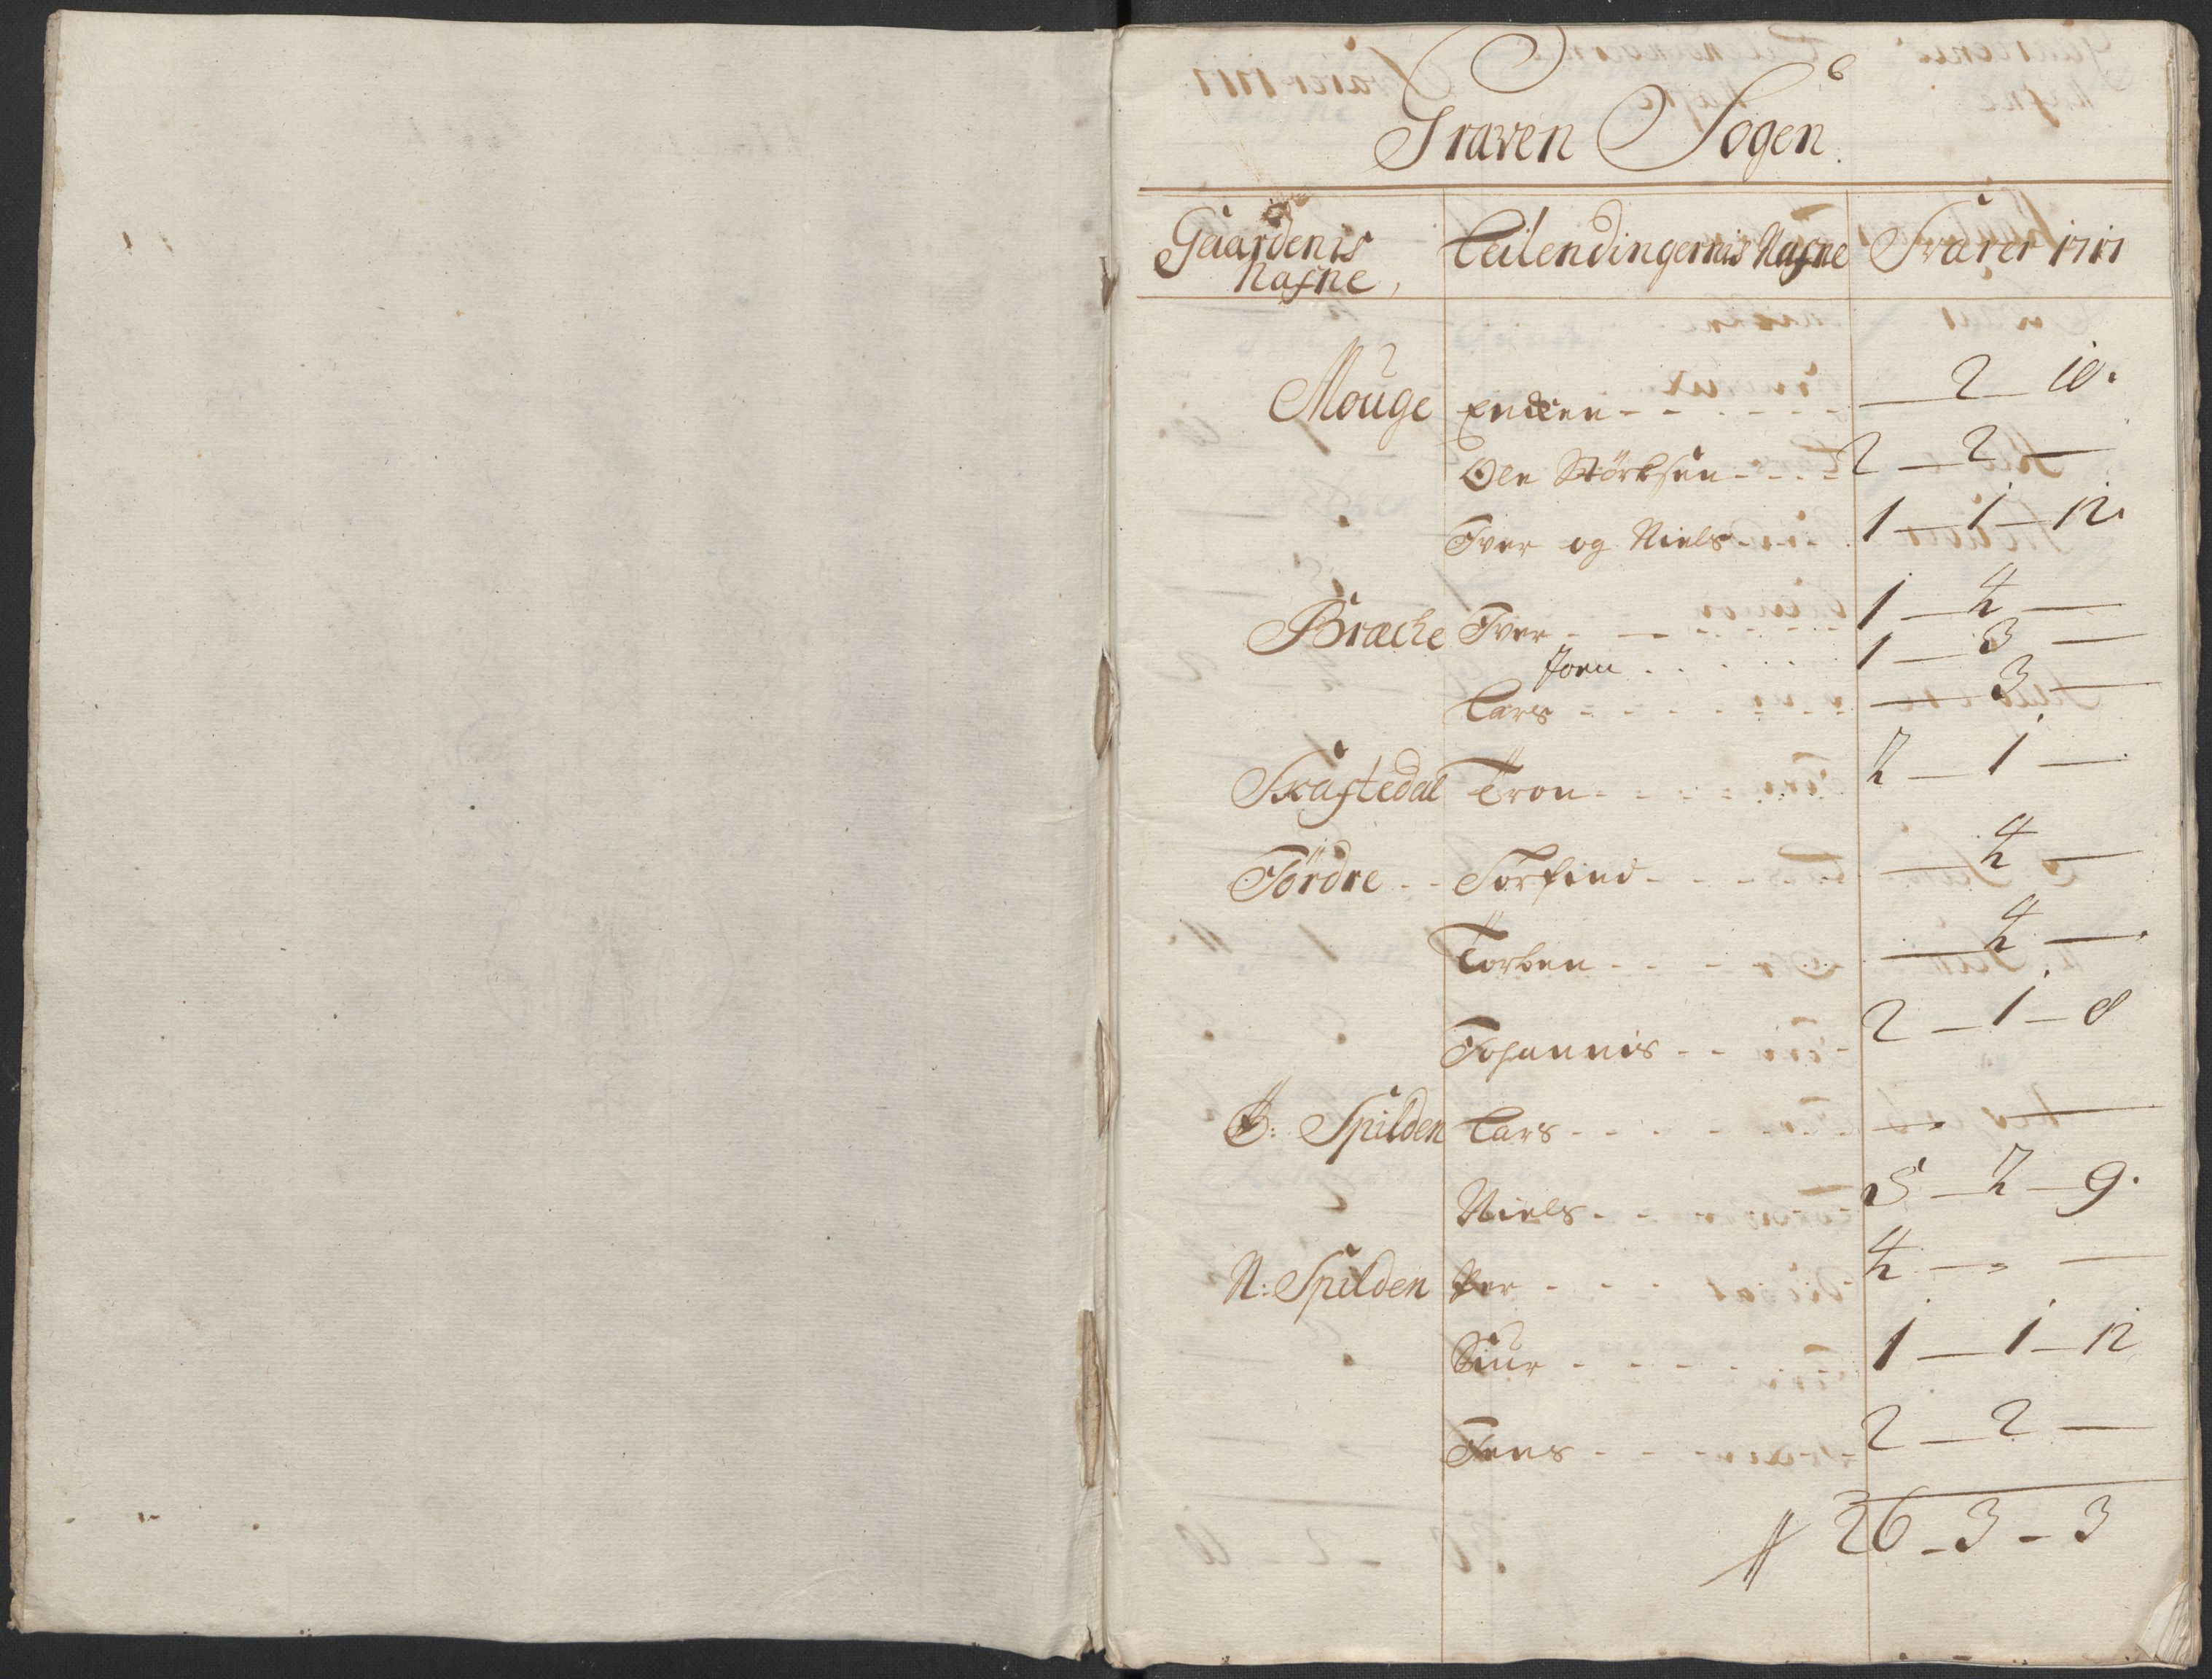 6
Graven Sogen.
Gaardenis Nafne, Leilendingernis Nafne Svarer 1717
Mouge Endren - - - - - — 2 — 10.
Ole Störksen - - - - 2 — 2 —
Iver og Niels - - - 1 — 1 — 12.
Bræche Iver - - - - 1 — 4 —
Joen . . . . . . 1 — 3 —
Lars - - - - - - — 3 —
Skaftedal Tron - - - - - 2 — 1 —
Fördre - - Torfind - - - - - — 4 —
Torben - - - - - — 4 —
Johannis - - - 2 — 1 — 8
Ö: Spilden Lars - - - - - - — . —
Niels - - - - 5 — 2 — 9.
N: Spilden Per - - - - 4 — - —
Siur - - - - - 1 — 1 — 12
Jens - - - - - 2 — 2 —
26 - 3 - 3